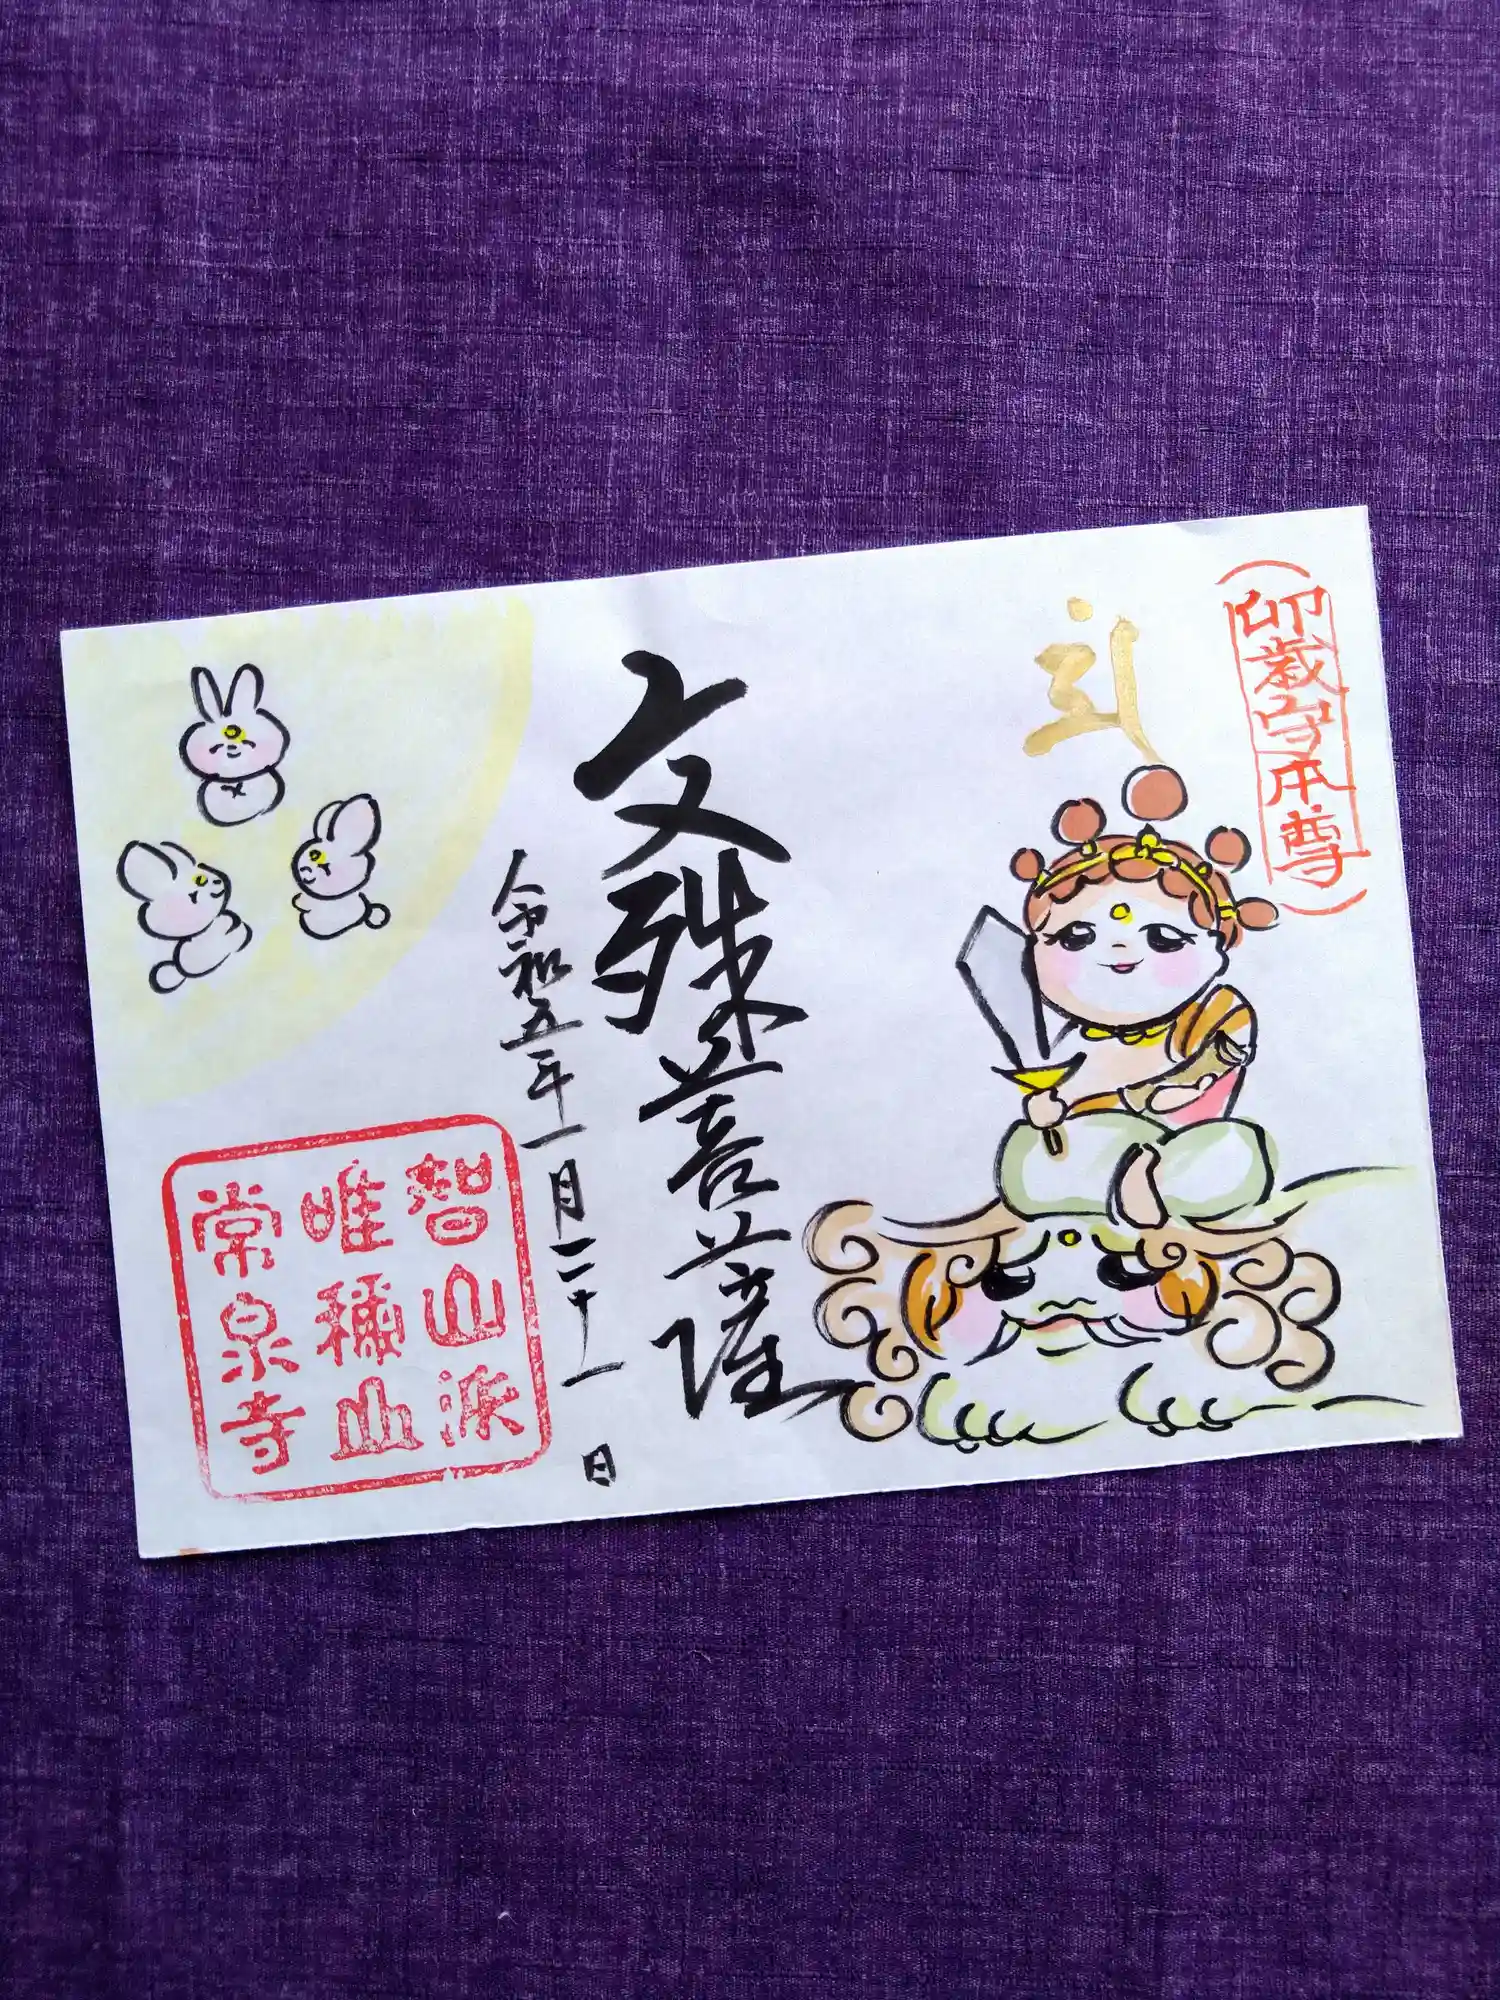 卯歳守本尊
文殊菩薩
令和五年一月二十一日
智山派
唯穐山
常泉寺